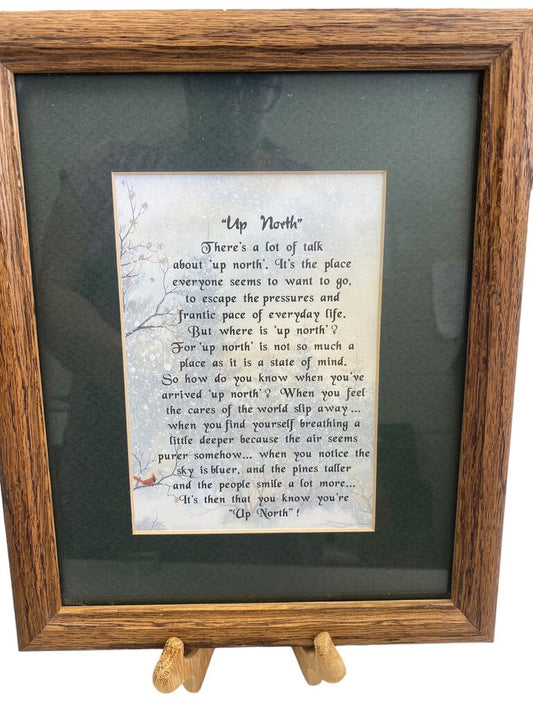 "Up North"
There's a lot of talk
about 'up north'. It's the place
everyone seems to want to go,
to escape the pressures and
frantic pace of everyday life.
But where is 'up north'?
For 'up north' is not so much a
place as it is a state of mind.
So how do you know when you've
arrived 'up north'? When you feel
the cares of the world slip away...
when you find yourself breathing a
little deeper because the air seems
purer somehow... when you notice the
sky is bluer, and the pines taller
and the people smile a lot more...
It's then that you know you're
"Up North"!